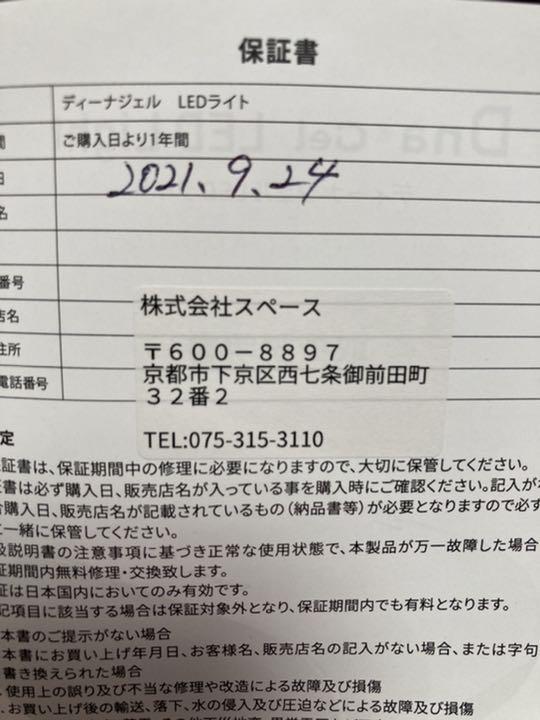 保証書
ディーナジェル LEDライト
間 ご購入日より1年間
日 2021、9、24
名
番号
店名 株式会社スペース
住所 〒600-8897
京都市下京区西七条御前田町
電話番号 32番2
TEL:075-315-3110
定
証書は、保証期間中の修理に必要になりますので、大切に保管してください。
証書は必ず購入日、販売店名が入っている事を購入時にご確認ください。記入が
購入日、販売店名が記載されているもの(納品書等)が必要となりますので必ず
に一緒に保管してください。
扱説明書の注意事項に基づき正常な使用状態で、本製品が万一故障した場合
証期間内無料修理・交換致します。
証は日本国内においてのみ有効です。
記項目に該当する場合は保証対象外となり、保証期間内でも有料となります。
本書のご提示がない場合
本書にお買い上げ年月日、お客様名、販売店名の記入がない場合、または字句
書き換えられた場合
使用上の誤り及び不当な修理や改造による故障及び損傷
お買い上げ後の輸送、落下、水の侵入及び圧迫などによる故障及び損傷